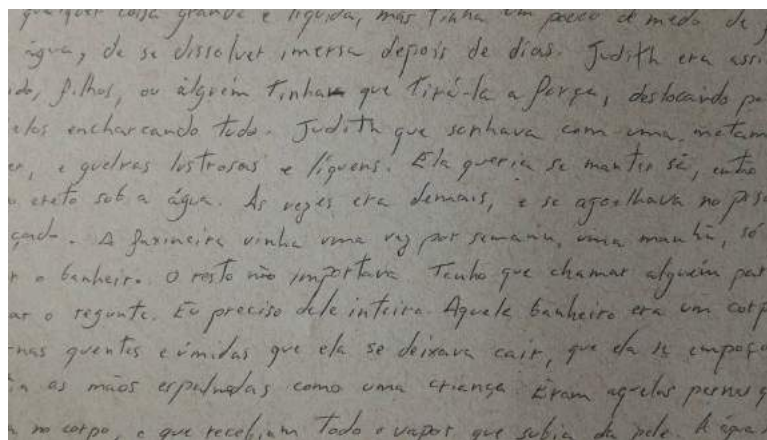 qualquer coisa grande e líquida, mas tinha um pouco de medo de
água, de se dissolver imersa depois de dias. Judith era assi
ido, filhos, ou alguém tinham que tirá-la a força, deslocando pe
elos encharcando tudo. Judith que sonhava com uma metam
er, e guelras lustrosas e líquens. Ela queria se manter só, então
ereto sob a água. Às vezes era demais, e se agoelhava no piso
çado. A faxineira vinha uma vez por semana, uma manhã, só
r o banheiro. O resto não importava. Tenho que chamar alguém par
ar o registro. Eu preciso dele inteiro. Aquele banheiro era um corp
nas quentes e úmidas que ela se deixava cair, que ela
ia as mãos espalmadas como uma criança. Eram aquelas pernas q
no corpo, e que recebiam todo o vapor que subia da pele. A água